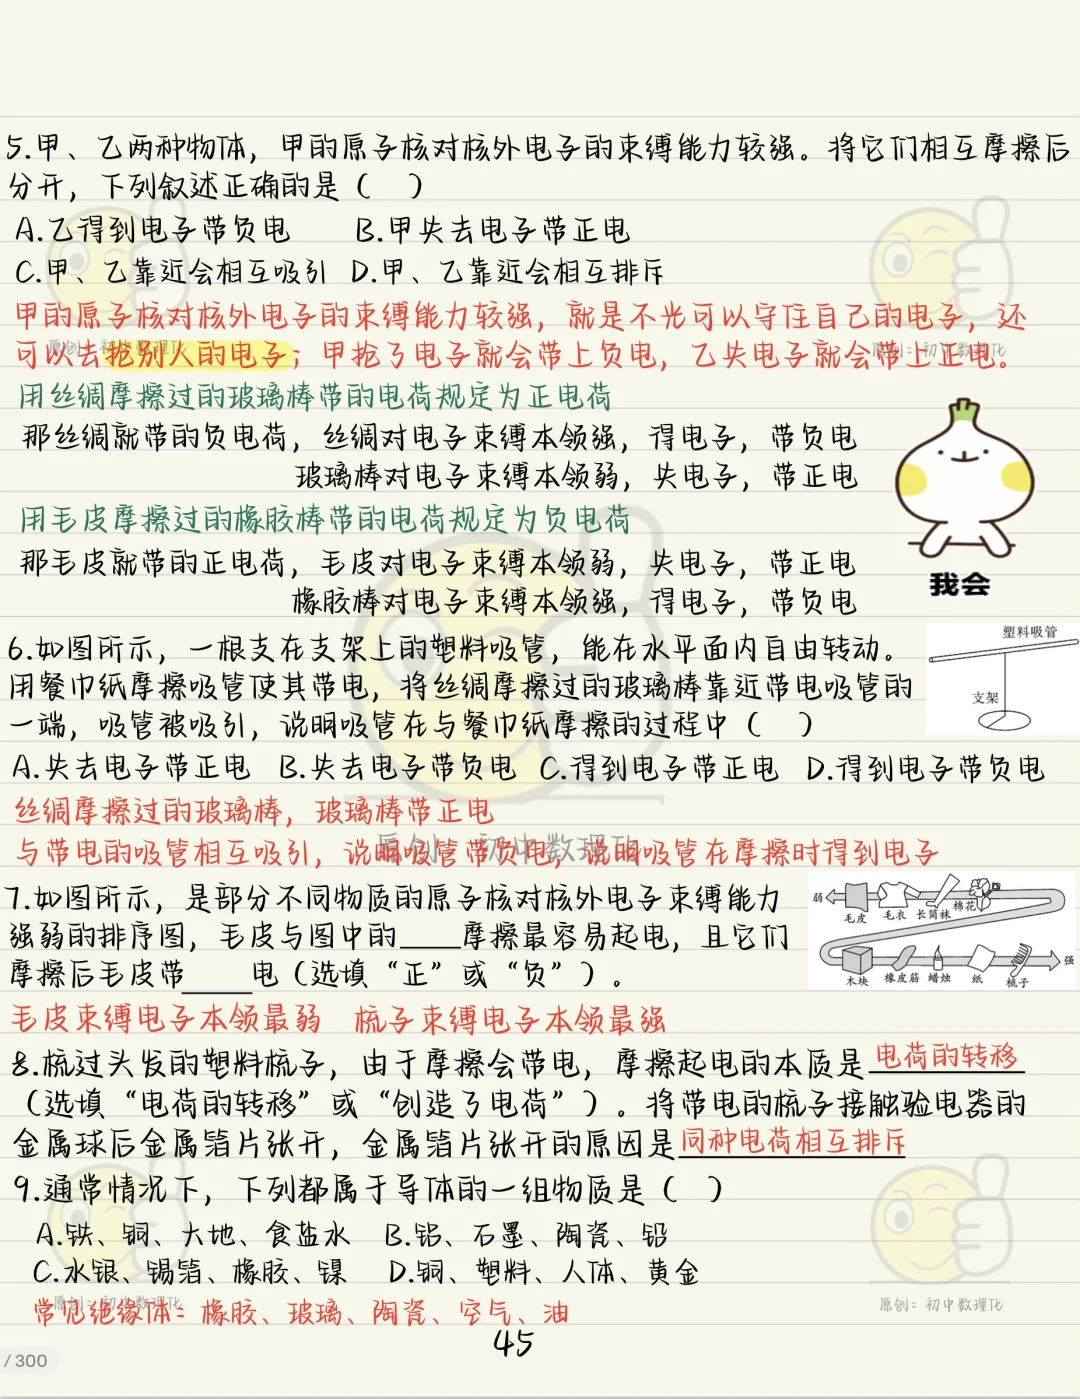 5.甲、乙两种物体，甲的原子核对核外电子的束缚能力较强。将它们相互摩擦后
分开，下列叙述正确的是（　）
A.乙得到电子带负电　B.甲失去电子带正电
C.甲、乙靠近会相互吸引 D.甲、乙靠近会相互排斥
甲的原子核对核外电子的束缚能力较强，就是不光可以守住自己的电子，还
可以去抢别人的电子；甲抢了电子就会带上负电，乙失电子就会带上正电。
原创：初中数理化
原创：初中数理化
用丝绸摩擦过的玻璃棒带的电荷规定为正电荷
那丝绸就带的负电荷，丝绸对电子束缚本领强，得电子，带负电
玻璃棒对电子束缚本领弱，失电子，带正电
用毛皮摩擦过的橡胶棒带的电荷规定为负电荷
那毛皮就带的正电荷，毛皮对电子束缚本领弱，失电子，带正电
我会
橡胶棒对电子束缚本领强，得电子，带负电
6.如图所示，一根支在支架上的塑料吸管，能在水平面内自由转动。
用餐巾纸摩擦吸管使其带电，将丝绸摩擦过的玻璃棒靠近带电吸管的
一端，吸管被吸引，说明吸管在与餐巾纸摩擦的过程中（　）
塑料吸管
支架
A.失去电子带正电 B.失去电子带负电 C.得到电子带正电 D.得到电子带负电
丝绸摩擦过的玻璃棒，玻璃棒带正电
与带电的吸管相互吸引，说明吸管带负电，说明吸管在摩擦时得到电子
原创：初中数理化
7.如图所示，是部分不同物质的原子核对核外电子束缚能力
强弱的排序图，毛皮与图中的____摩擦最容易起电，且它们
摩擦后毛皮带____电（选填“正”或“负”）。
弱 毛皮 毛衣 长筒袜 棉花
木块 橡皮筋 蜡烛 纸 梳子 强
毛皮束缚电子本领最弱　梳子束缚电子本领最强
8.梳过头发的塑料梳子，由于摩擦会带电，摩擦起电的本质是电荷的转移
（选填“电荷的转移”或“创造了电荷”）。将带电的梳子接触验电器的
金属球后金属箔片张开，金属箔片张开的原因是同种电荷相互排斥
9.通常情况下，下列都属于导体的一组物质是（　）
A.铁、铜、大地、食盐水　B.铝、石墨、陶瓷、铅
C.水银、锡箔、橡胶、镍　D.铜、塑料、人体、黄金
常见绝缘体：橡胶、玻璃、陶瓷、空气、油
原创：初中数理化
原创：初中数理化
45
/ 300